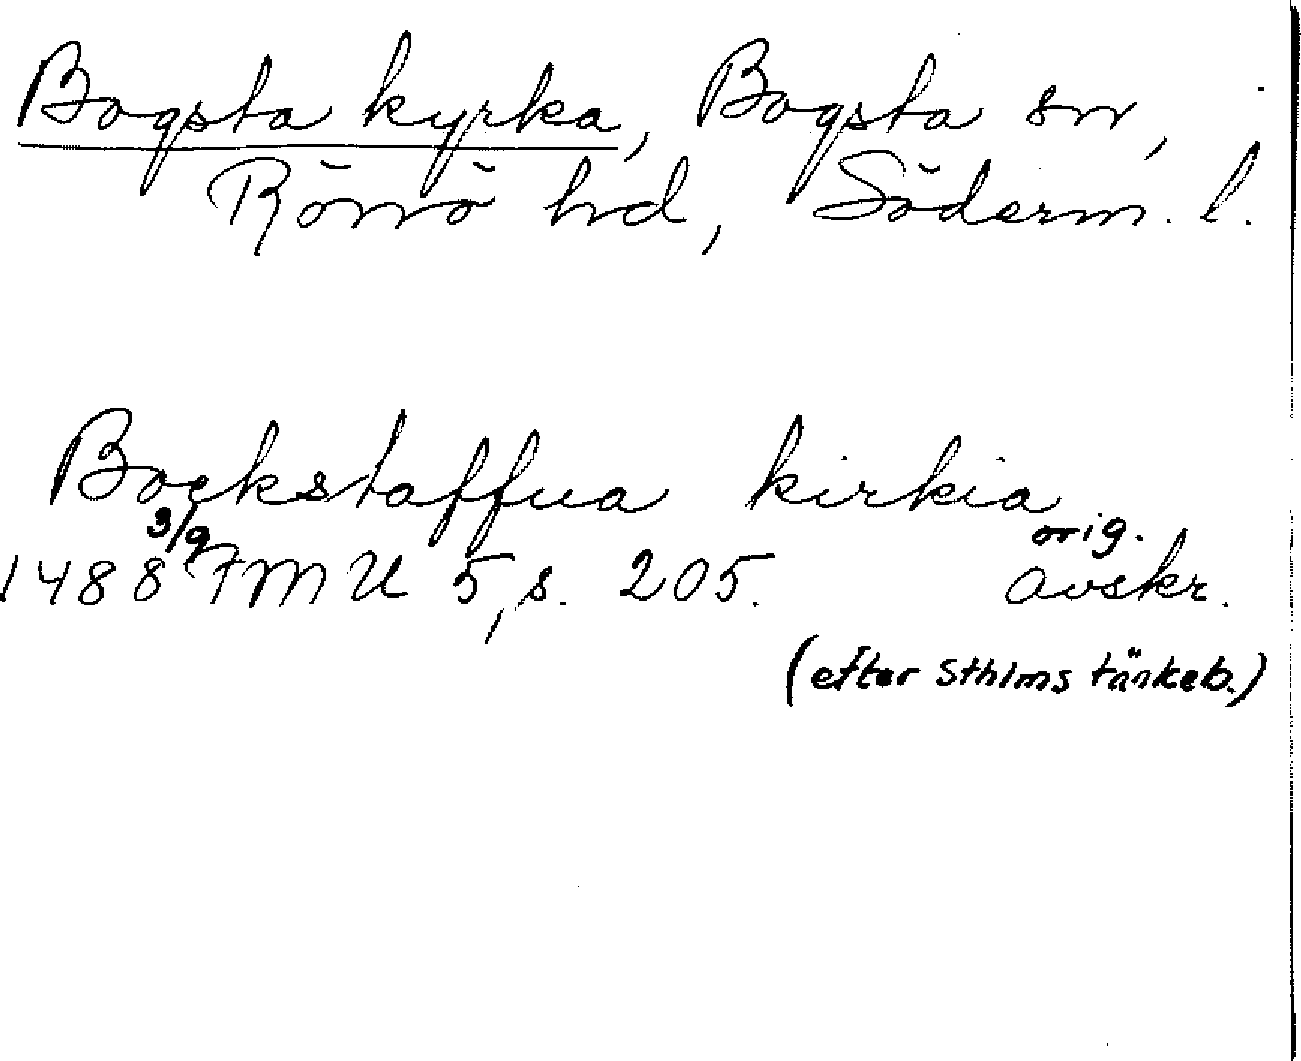 Bogsta kyrka, Bogsta sn,
Rönö hd, Söderm. l.
Bockstaffua kirkia
3/9 orig.
1488 FMU 5, s. 205. avskr.
(efter Sthlms tänkeb.)